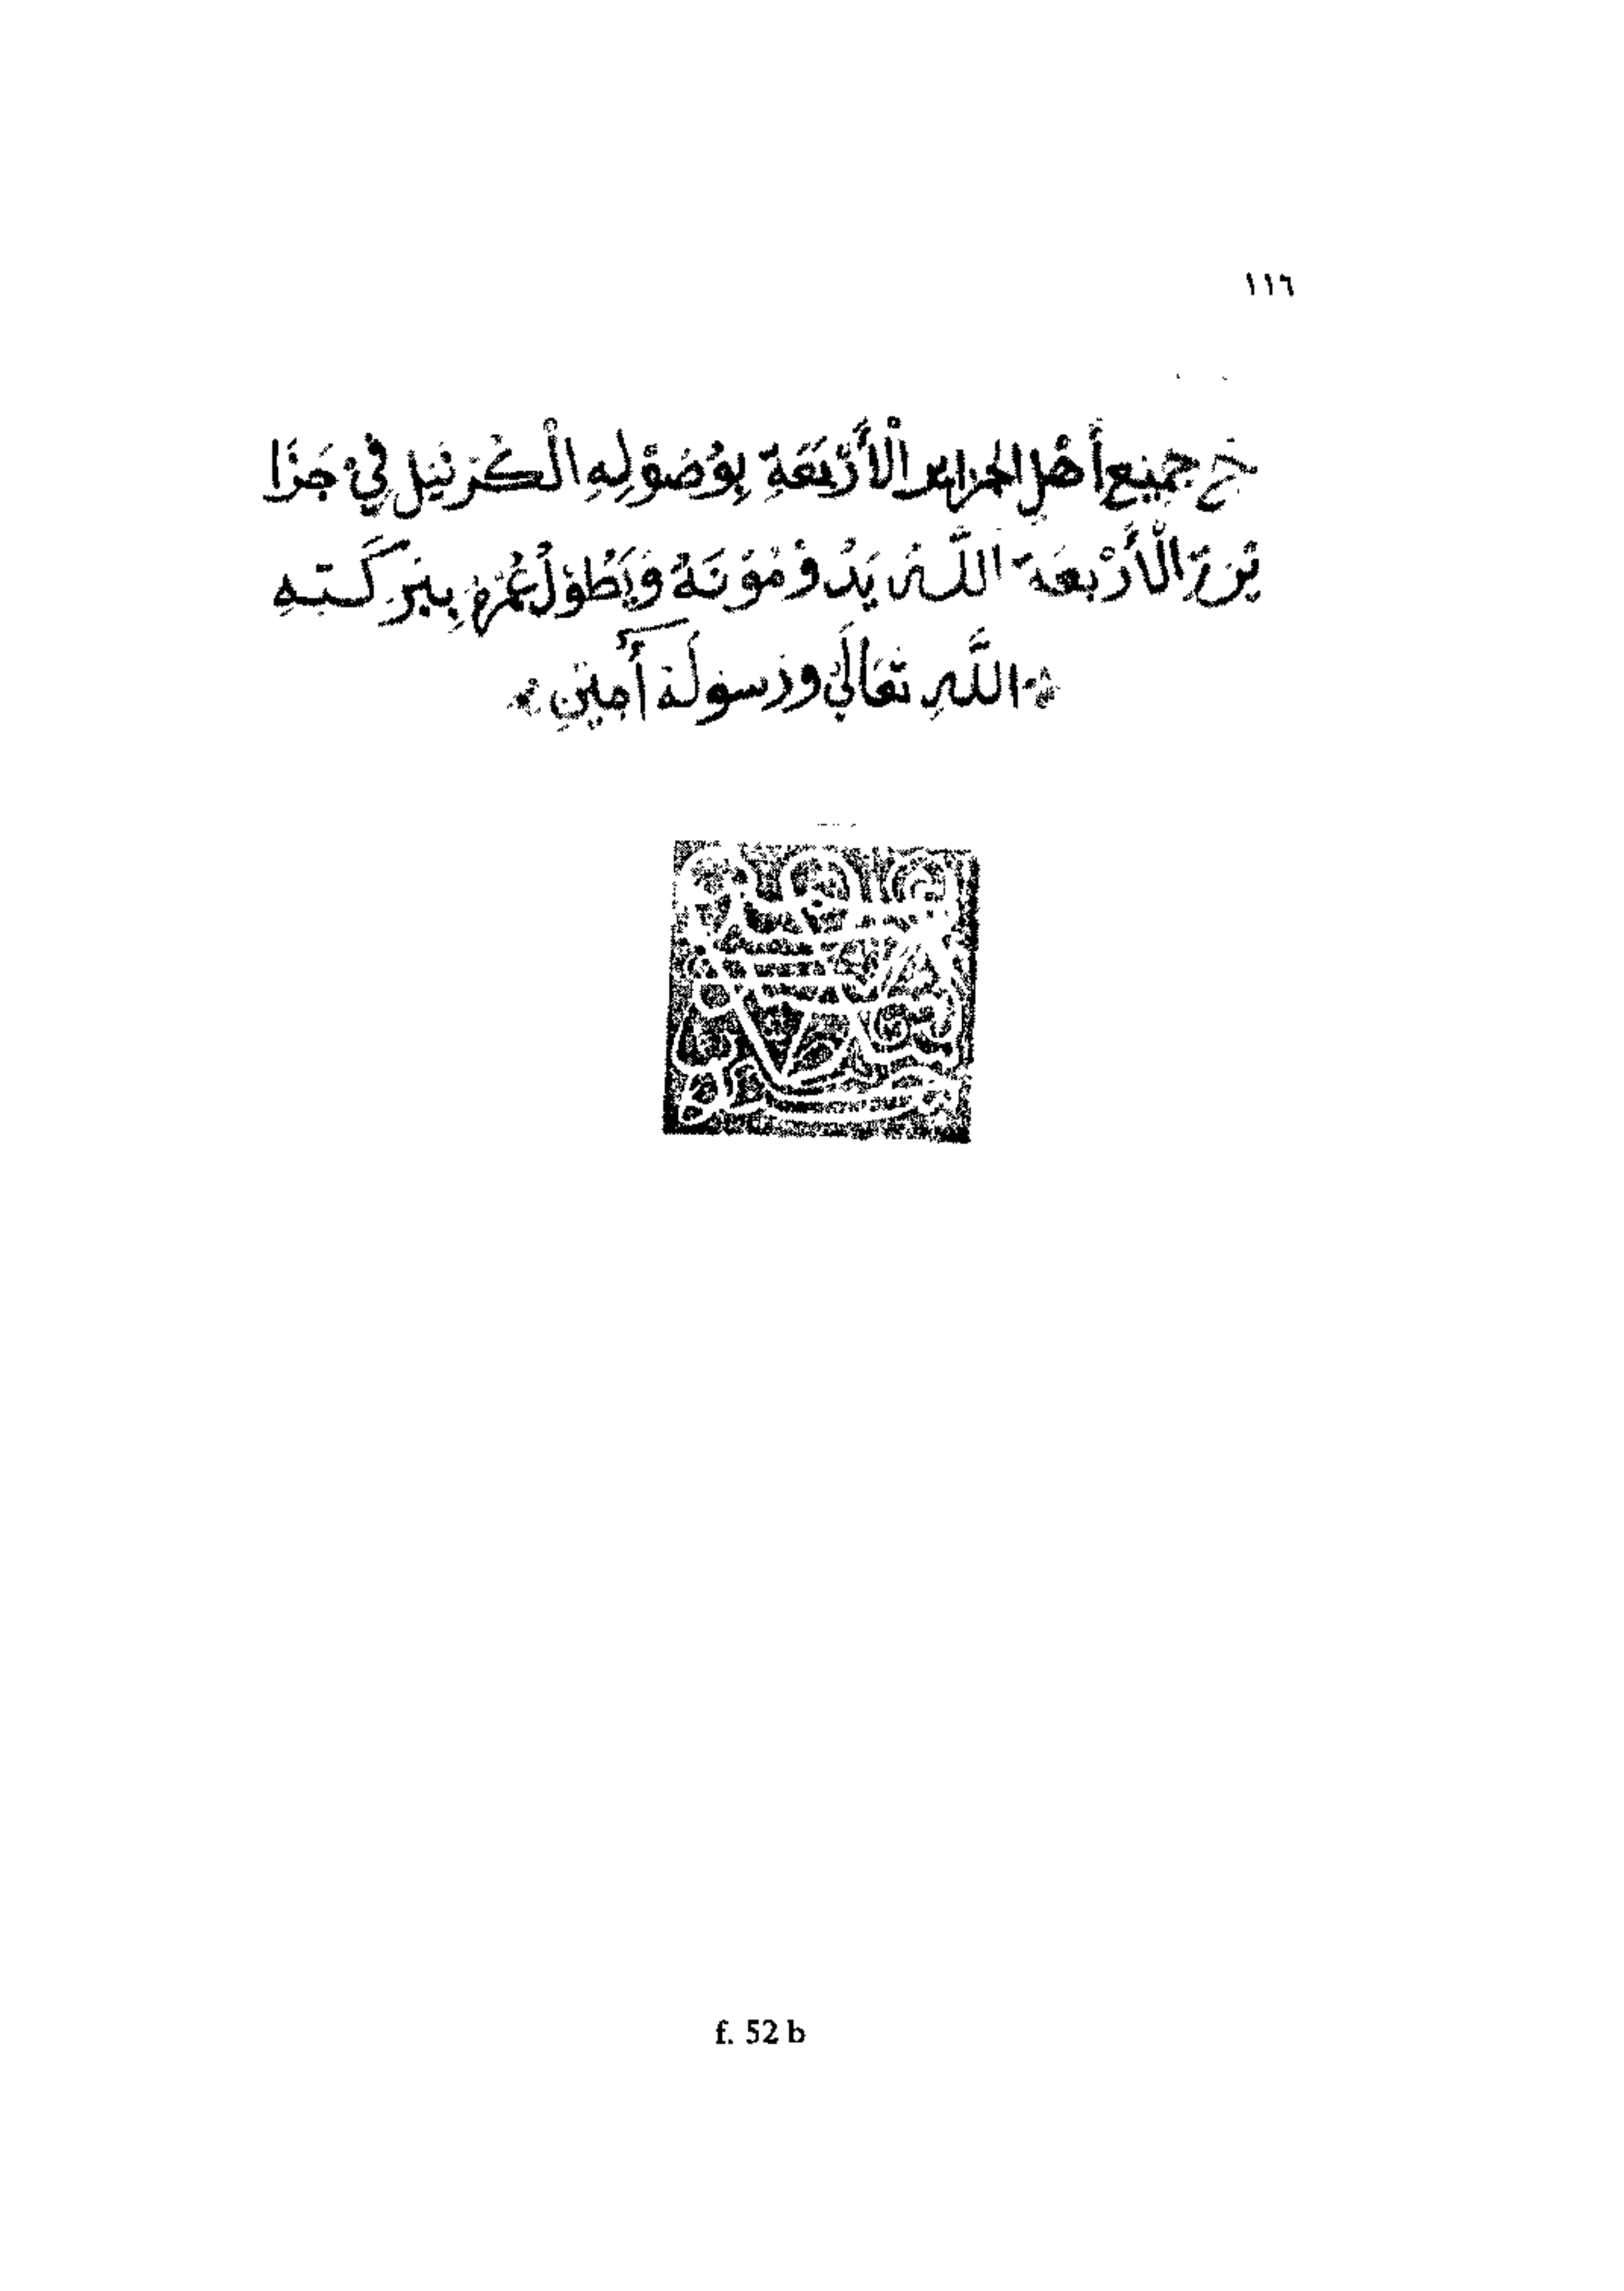 ١١٦
خ جَمِيْعِ أَهْلِ الجزائر الْأَرْبَعَةِ بِوُصُوْلِهِ الْكَرْنَيْل فِيْ جَزَا
ئِرَ الْأَرْبَعَةَ اللَّهُ يَدُوْمُوْنَهُ وَيَطُوْلُ عُمْرَهُ بِبَرَكَتِهِ
اللَّهِ تَعَالَى وَرَسُوْلَهُ أَمِيْنِ
f. 52 b